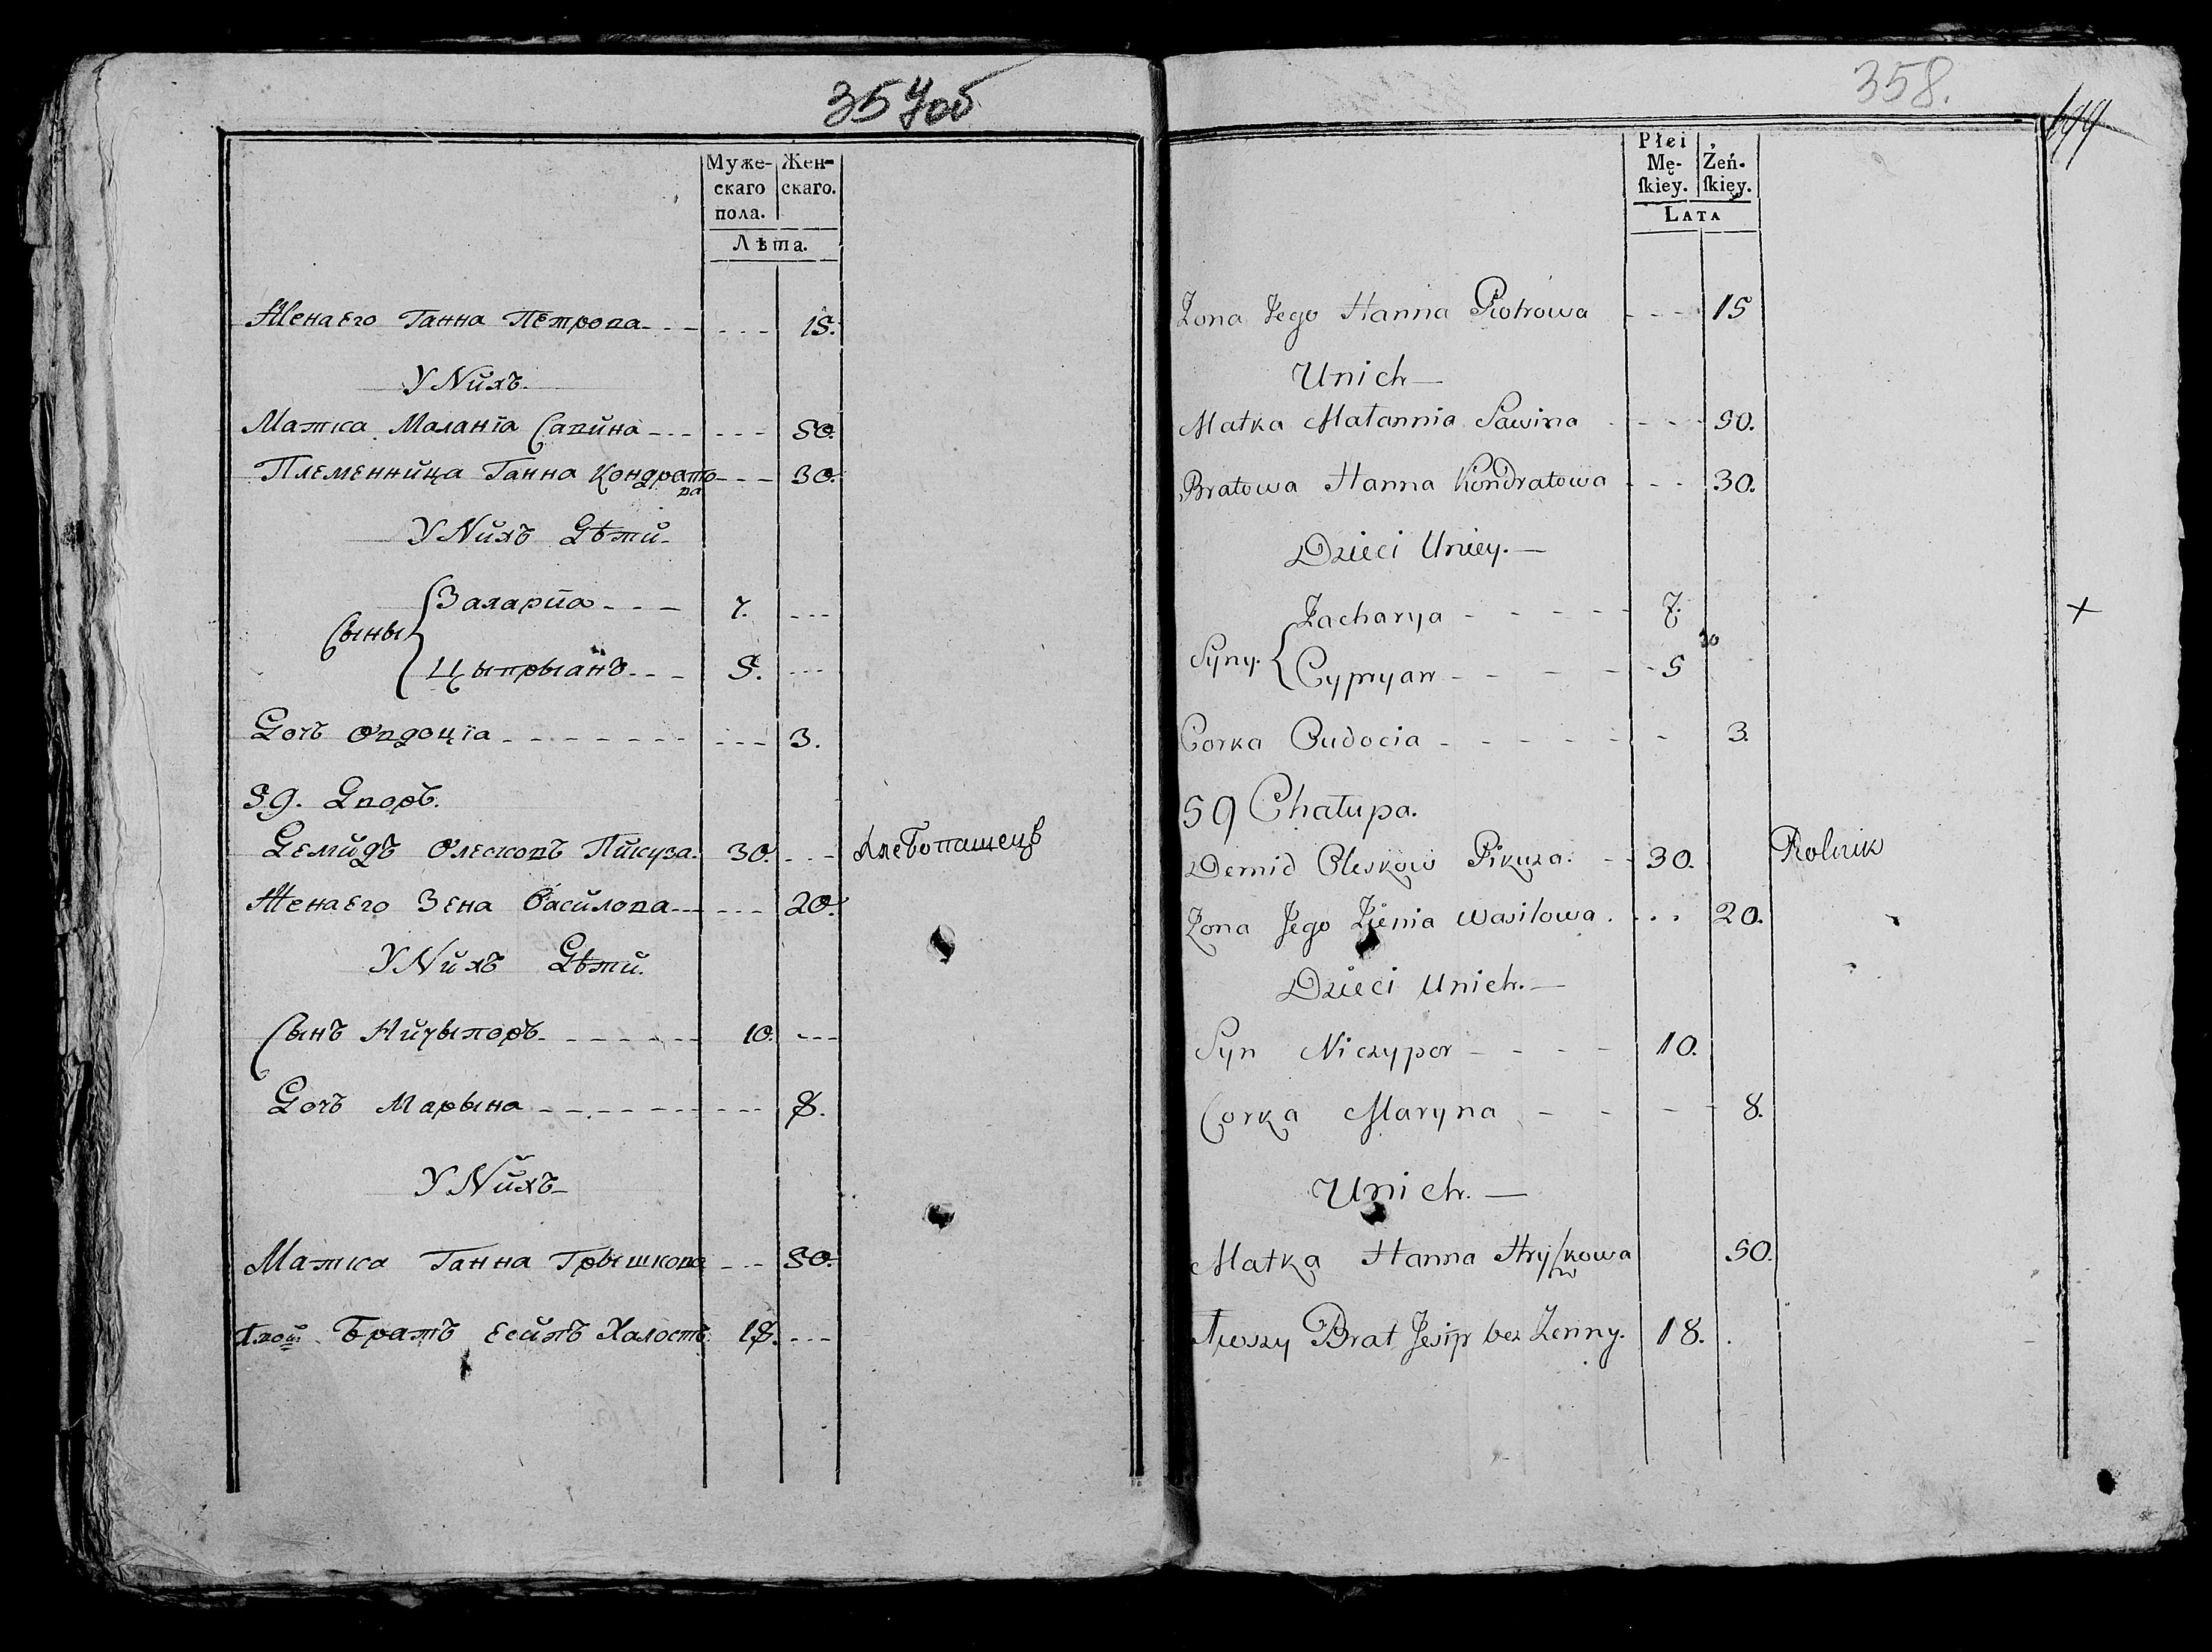 357об
Муже-
скаго
пола.
Жен-
скаго.
Лѣта.
Жена Его Ганна Петрова 15.
У Nихъ
Матка Маланїа Савина 50.
Племенница Ганна Кондратова 30.
У Nихъ Дѣти
Сыны
Захарйа 7.
Цыпрыанъ 5.
Дочъ Овдоцїа 3.
59. Дворъ.
Демидъ Олесковъ Пикуза. 30. Хлебопашецъ
Жена Его Зена Василова 20.
У Nихъ Дѣти.
Сынъ Ничыпоръ 10.
Дочъ Марына 8.
У Nихъ
Матка Ганна Грышкова 50.
Братъ Есипъ Халостъ. 18.
358.
199
Płei
Mę-
ſkiey.
Żeń-
ſkiey.
Lata
Zona Jego Hanna Piotrowa 15
Unich
Matka Małannia Sawina 50.
Bratowa Hanna Kondratowa 30.
Dzieci Uniey.
Syny.
Zacharya 7.
Cypryan 5
Corka Oudocia 3.
59 Chałupa.
Demid Oleskow Pikuza. 30. Rolnik
Zona Jego Zienia Wasilowa. 20.
Dzieci Unich.
Syn Niczypor 10.
Corka Maryna 8.
Unich.
Matka Hanna Hryſzkowa 50.
Brat Jesip bez Zenny. 18.